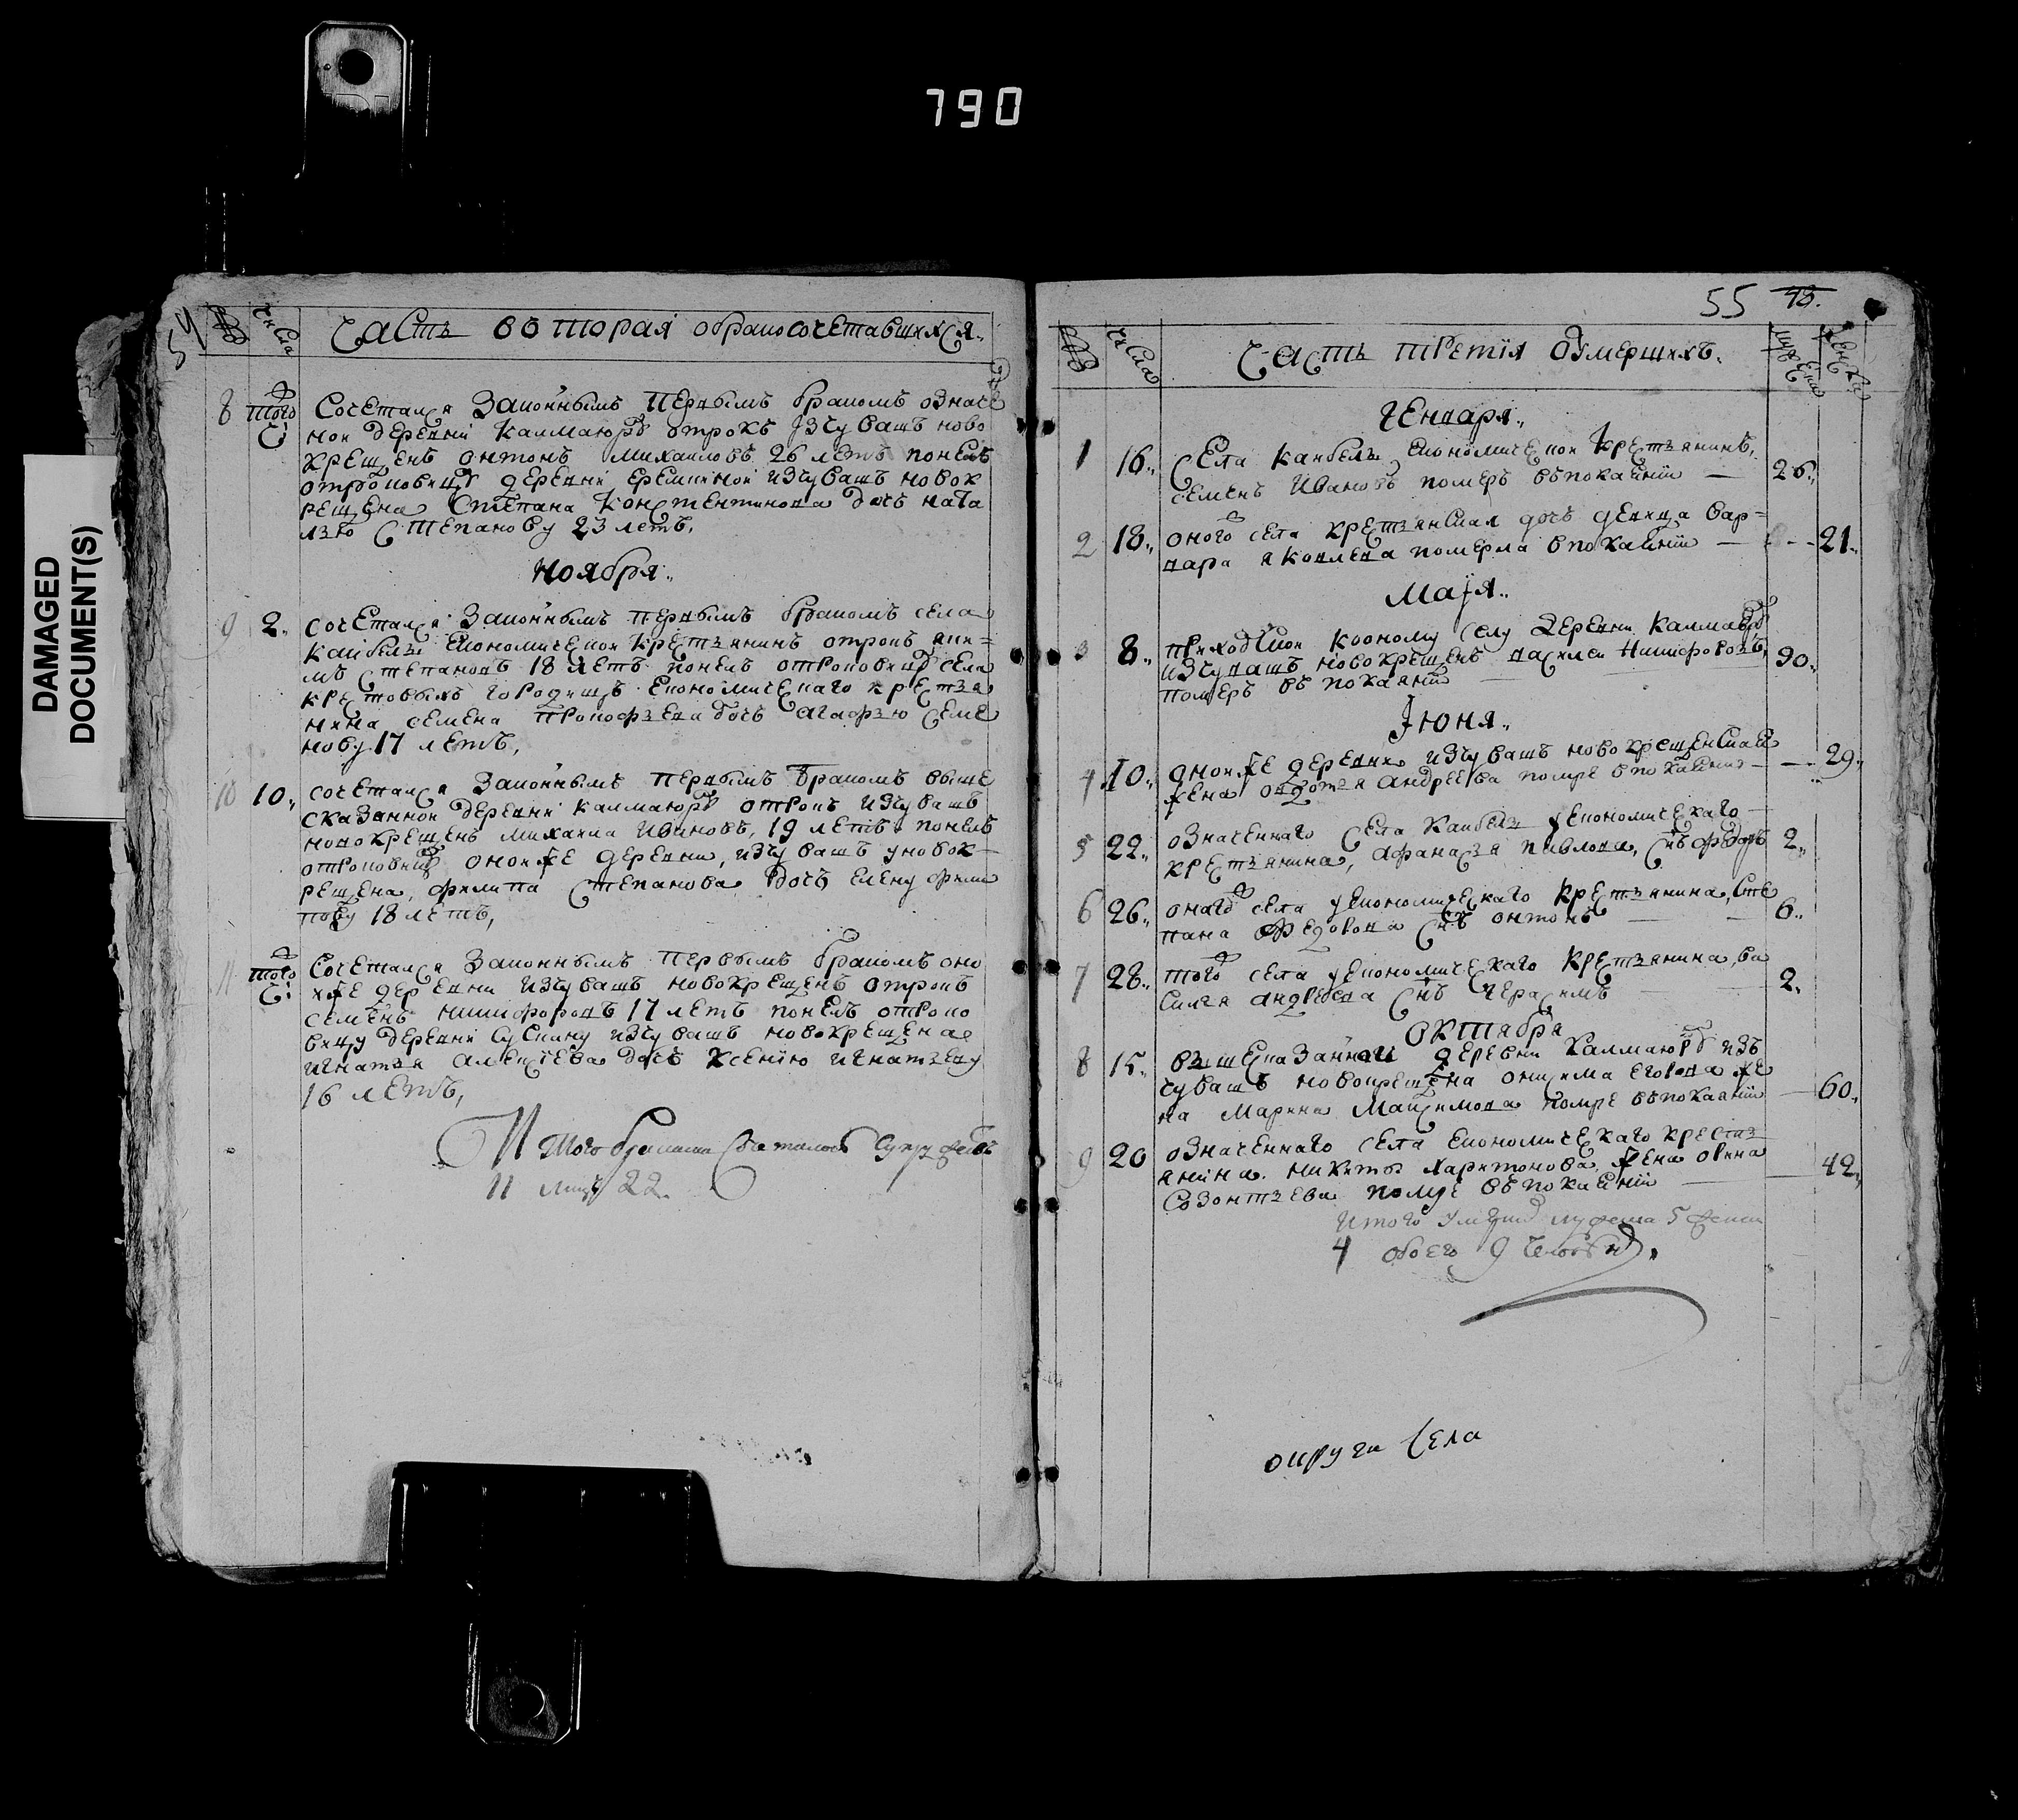 790
DAMAGED
DOCUMENT(S)
54
числа
часть вторая обраносочетавшихся
8 того ч: Сочетался законнымъ первымъ бракомъ означе
ной деревни Калмаюръ отрокъ изчувашъ ново
крещенъ антонъ михаиловъ 26 летъ понелъ
отроковицу деревни Еремкиной изчувашъ новок
рещена Степана Констентинова дочь ната
лью Степанову 23 летъ,
Ноября
9 2 сочетался законнымъ первымъ бракомъ села
Каибелъ економической крестьянинъ отрокъ
мъ степановъ 18 летъ понелъ отроковицу села
крестовыхъ городищъ економическаго крестья
нина семена прокофьева дочь агафью семе
нову 17 летъ,
10 10 сочетался законнымъ первымъ бракомъ выше
сказанной деревни калмаюръ отрокъ изчувашъ
новокрещенъ михаила Ивановъ, 19 летъ понелъ
отроковицу оной же деревни, изчувашъ уновок
рещена, филипа степанова дочь елену фили
пову 18 летъ,
11 того ч: Сочетался законнымъ первымъ бракомъ оно
иже деревни изчувашъ новокрещенъ отрокъ
семенъ никифоровъ 17 летъ понелъ отроко
вицу деревни Сускину изчувашъ новокрещенае
игнатья алексIева дочь ксенiю игнатьеву
16 летъ,
Итого браками сочеталось супружествъ
11 лицъ 22
55 43.
числа
часть третiя оумершихъ.
мужеска
женска
Генваря
1 16 Села каибелъ економической крестьянинъ,
семенъ Ивановъ померъ впокаянiи 26
2 18 оного села крестьянская дочь девица вар=
вара яковлева померла впокаянiи 21
Маiя
3 8 приходской кооному селу деревни калмаюръ
изчувашъ новокрещенъ василеи Никифоровъ,
померъ въ покаянiи 90
Iюня
4 10 оной же деревни изчувашъ новокрещенская
жена авдотья андреева помре впокаянiи 29
5 22 означеннаго села каибелъ уекономическаго
крестьянина, афанасья павлова, снъ федоръ 2
6 26 онаго села уекономическаго крестьянина, Сте
пана федорова снъ антонъ 6
7 28 того села уекономическаго крестьянина, ва
силья андреева снъ герасимъ 2
Октября
8 15 вышеказанной деревни калмаюръ изъ
чувашъ новокрещена онисима егорова же
на марина Максимова помре въпокаянiи 60
9 20 означеннаго села економическаго кресть
янина. никиты харитонова, жена орина
Созонтьева помре въпокаянiи 42
Итого умерло мужеска 5 женска
4 обоего 9 человекъ
округи Села